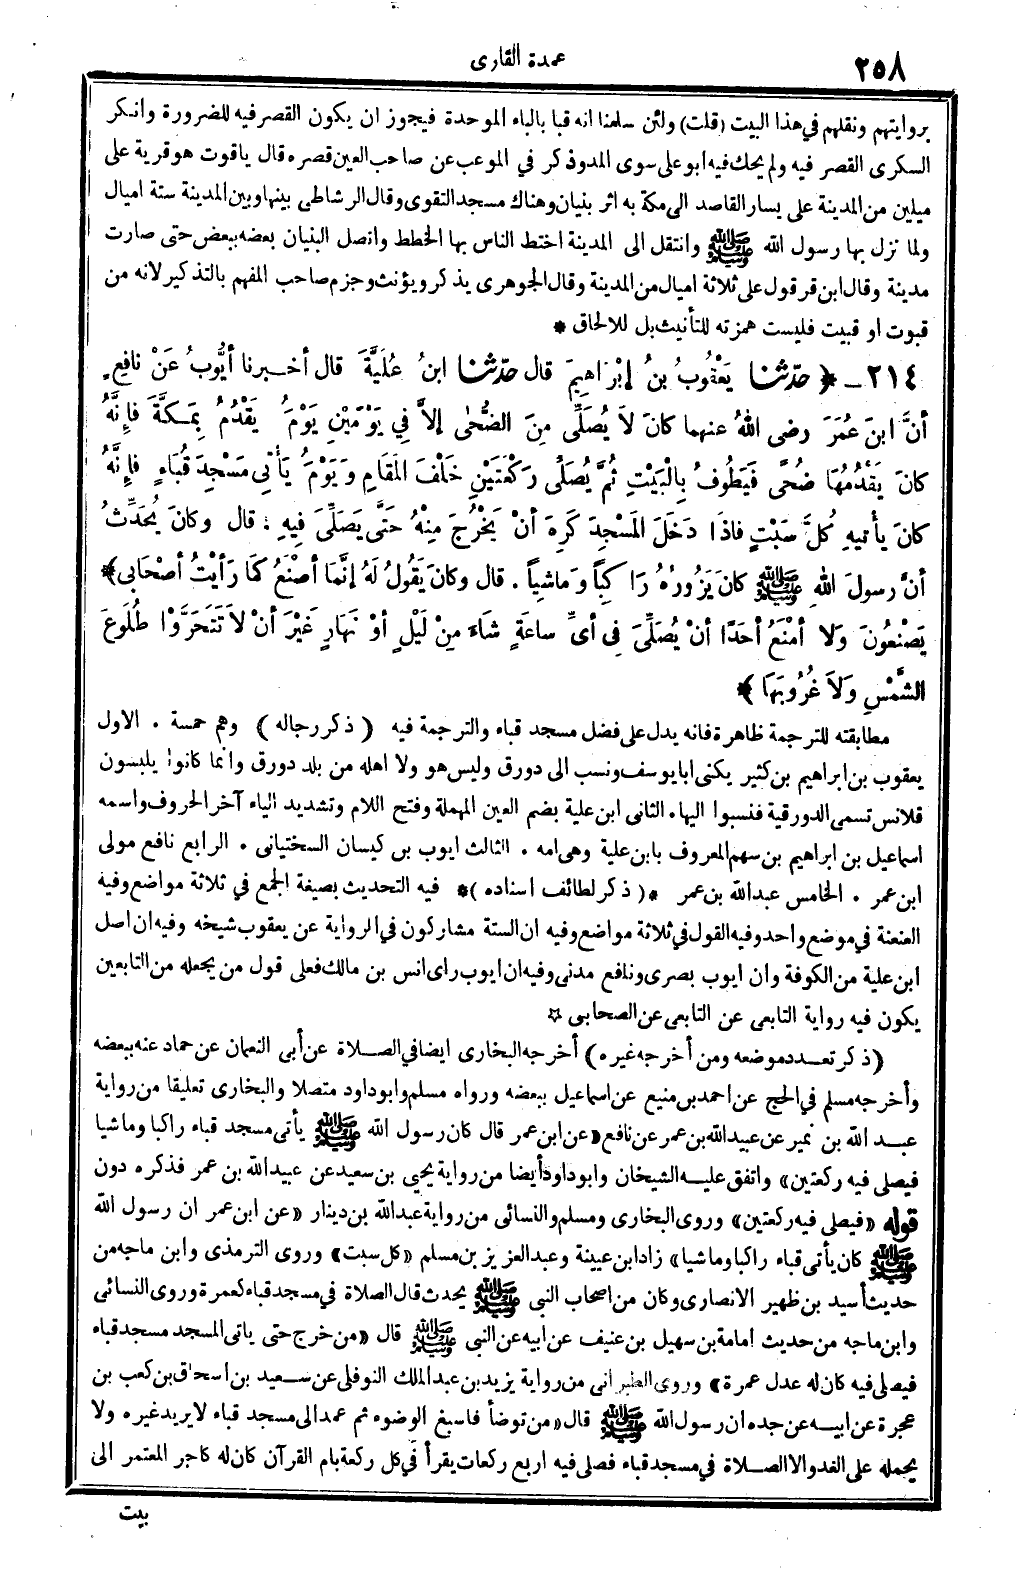 ٢٥٨
عمدة القارى
بروايتهم ونقلهم في هذا البيت (قلت) ولئن سلمنا انه قبا بالباء الموحدة فيجوز ان يكون القصر فيه للضرورة وانكر
السكرى القصر فيه ولم يحك فيه ابو على سوى المد وذكر في الموعب عن صاحب العين قصره قال ياقوت هو قرية على
ميلين من المدينة على يسار القاصد الى مكة به اثر بنيان وهناك مسجد التقوى وقال الرشاطى بينها وبين المدينة ستة اميال
ولما نزل بها رسول الله ﷺ وانتقل الى المدينة اختط الناس بها الخطط واتصل البنيان بعضه ببعض حتى صارت
مدينة وقال ابن قرقول على ثلاثة اميال من المدينة وقال الجوهرى يذكر ويؤنث وجزم صاحب المفهم بالتذكير لانه من
قبوت او قبيت فليست همزته للتأنيث بل للالحاق *
٢١٤ـ ﴿ حَدَّثَنَا يَعْقُوبُ بنُ إبْرَاهِيمَ قال حَدَّثَنَا ابنُ عُلَيَّةَ قال أخـبرنا أيُّوبُ عَنْ نافِعٍ
أنَّ ابنَ عُمَرَ رضى اللهُ عنهما كانَ لاَ يُصَلِّى مِنَ الضُّحٰى إلاَّ فِي يَوْمَيْنِ يَوْمُ يَقْدُمُ بِمَـكَّةَ فإنَّهُ
كانَ يَقْدُمُهَا ضُحًى فَيَطُوفُ بِالْبَيْتِ ثُمَّ يُصَلِّى رَكْعَتَيْنِ خَلْفَ المَقَامِ وَيَوْمُ يَأتِى مَسْجِدَ قُبَاءٍ فإنَّهُ
كانَ يأتيهِ كُلَّ سَبْتٍ فاذَا دَخَلَ المَسْجِدَ كَرِهَ أنْ يَخْرُجَ مِنْهُ حَتَّى يَصَلِّىَ فِيهِ . قال وكانَ يُحَدِّثُ
أنَّ رسولَ اللهِ ﷺ كانَ يَزُورُهُ رَاكِباً وَماشِياً . قال وكانَ يَقُولُ لَهُ إنَّما أصْنَعُ كَمَا رَأيْتُ أصْحَابِى
يَصْنَعُونَ وَلا أمْنَعُ أحَدًا أنْ يُصَلِّىَ فِى أىِّ ساعَةٍ شاءَ مِنْ لَيْلٍ أوْ نَهارٍ غَيْرَ أنْ لاَ تَتَحَرَّوْا طُلُوعَ
الشَّمْسِ وَلاَ غُرُوبَهَا ﴾
مطابقته للترجمة ظاهرة فانه يدل على فضل مسجد قباء والترجمة فيه ( ذكر رجاله ) وهم خمسة . الاول
يعقوب بن ابراهيم بن كثير يكنى ابا يوسف ونسب الى دورق وليس هو ولا اهله من بلد دورق وانما كانوا يلبسون
قلانس تسمى الدورقية فنسبوا اليها . الثانى ابن علية بضم العين المهملة وفتح اللام وتشديد الياء آخر الحروف واسمه
اسماعيل بن ابراهيم بن سهم المعروف بابن علية وهى امه . الثالث ايوب بن كيسان السختيانى . الرابع نافع مولى
ابن عمر . الخامس عبدالله بن عمر *( ذكر لطائف اسناده )* فيه التحديث بصيغة الجمع في ثلاثة مواضع وفيه
العنعنة في موضع واحد وفيه القول في ثلاثة مواضع وفيه ان الستة مشاركون في الرواية عن يعقوب شيخه وفيه ان اصل
ابن علية من الكوفة وان ايوب بصرى ونافع مدنى وفيه ان ايوب راى انس بن مالك فعلى قول من يجعله من التابعين
يكون فيه رواية التابعى عن التابعى عن الصحابى ☆
(ذكر تعـدد موضعه ومن أخرجه غيره) أخرجه البخارى ايضا في الصـلاة عن أبى النعمان عن حماد عنه ببعضه
وأخرجه مسلم في الحج عن احمد بن منيع عن اسماعيل ببعضه ورواه مسلم وابو داود متصلا والبخارى تعليقا من رواية
عبـد الله بن نمير عن عبيد الله بن عمر عن نافع «عن ابن عمر قال كان رسول الله ﷺ يأتى مسجد قباء راكبا وماشيا
فيصلى فيه ركعتين» واتفق عليـه الشيخان وابو داود أيضا من رواية يحيى بن سعيد عن عبيد الله بن عمر فذكره دون
قوله «فيصلى فيه ركعتين» وروى البخارى ومسلم والنسائى من رواية عبدالله بن دينار «عن ابن عمر ان رسول الله
ﷺ كان يأتى قباء راكبا وماشيا» زاد ابن عيينة وعبد العزيز بن مسلم «كل سبت» وروى الترمذى وابن ماجه من
حديث أسيد بن ظهير الانصارى وكان من اصحاب النبى ﷺ يحدث قال الصلاة في مسجد قباء كعمرة وروى النسائى
وابن ماجه من حديث امامة بن سهيل بن عنيف عن ابيه عن النبى ﷺ قال «من خرج حتى ياتى المسجد مسجد قباء
فيصلى فيه كان له عدل عمرة» وروى الطبرانى من رواية يزيد بن عبد الملك النوفلى عن سـعيد بن اسحاق بن كعب بن
عجرة عن ابيـه عن جده ان رسول الله ﷺ قال «من توضأ فاسبغ الوضوء ثم عمد الى مسجد قباء لا يريد غيره ولا
يحمله على الغدو الا الصـلاة في مسجد قباء فصلى فيه اربع ركعات يقرأ في كل ركعة بام القرآن كان له كاجر المعتمر الى
بيت